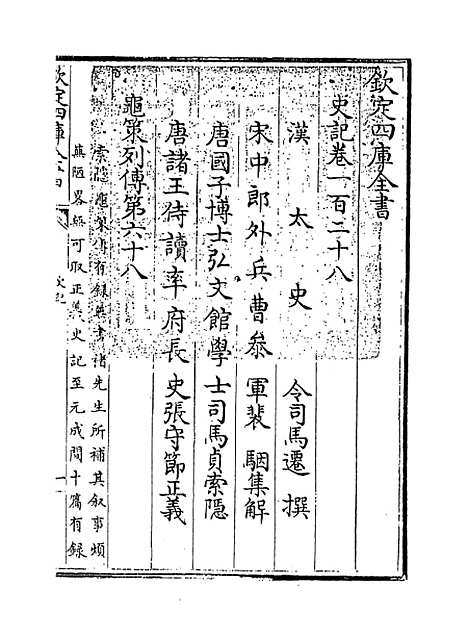 欽定四庫全書
史記卷一百二十八
漢太史令司馬遷撰
宋中郎外兵曹參軍裴駰集解
唐國子博士弘文館學士司馬貞索隱
唐諸王侍讀率府長史張守節正義
龜策列傳第六十八
索隱龜策傳有錄無書褚先生所補其叙事煩
蕪陋畧無可取正義史記至元成間十篇有録
欽定四庫全書
史記
一